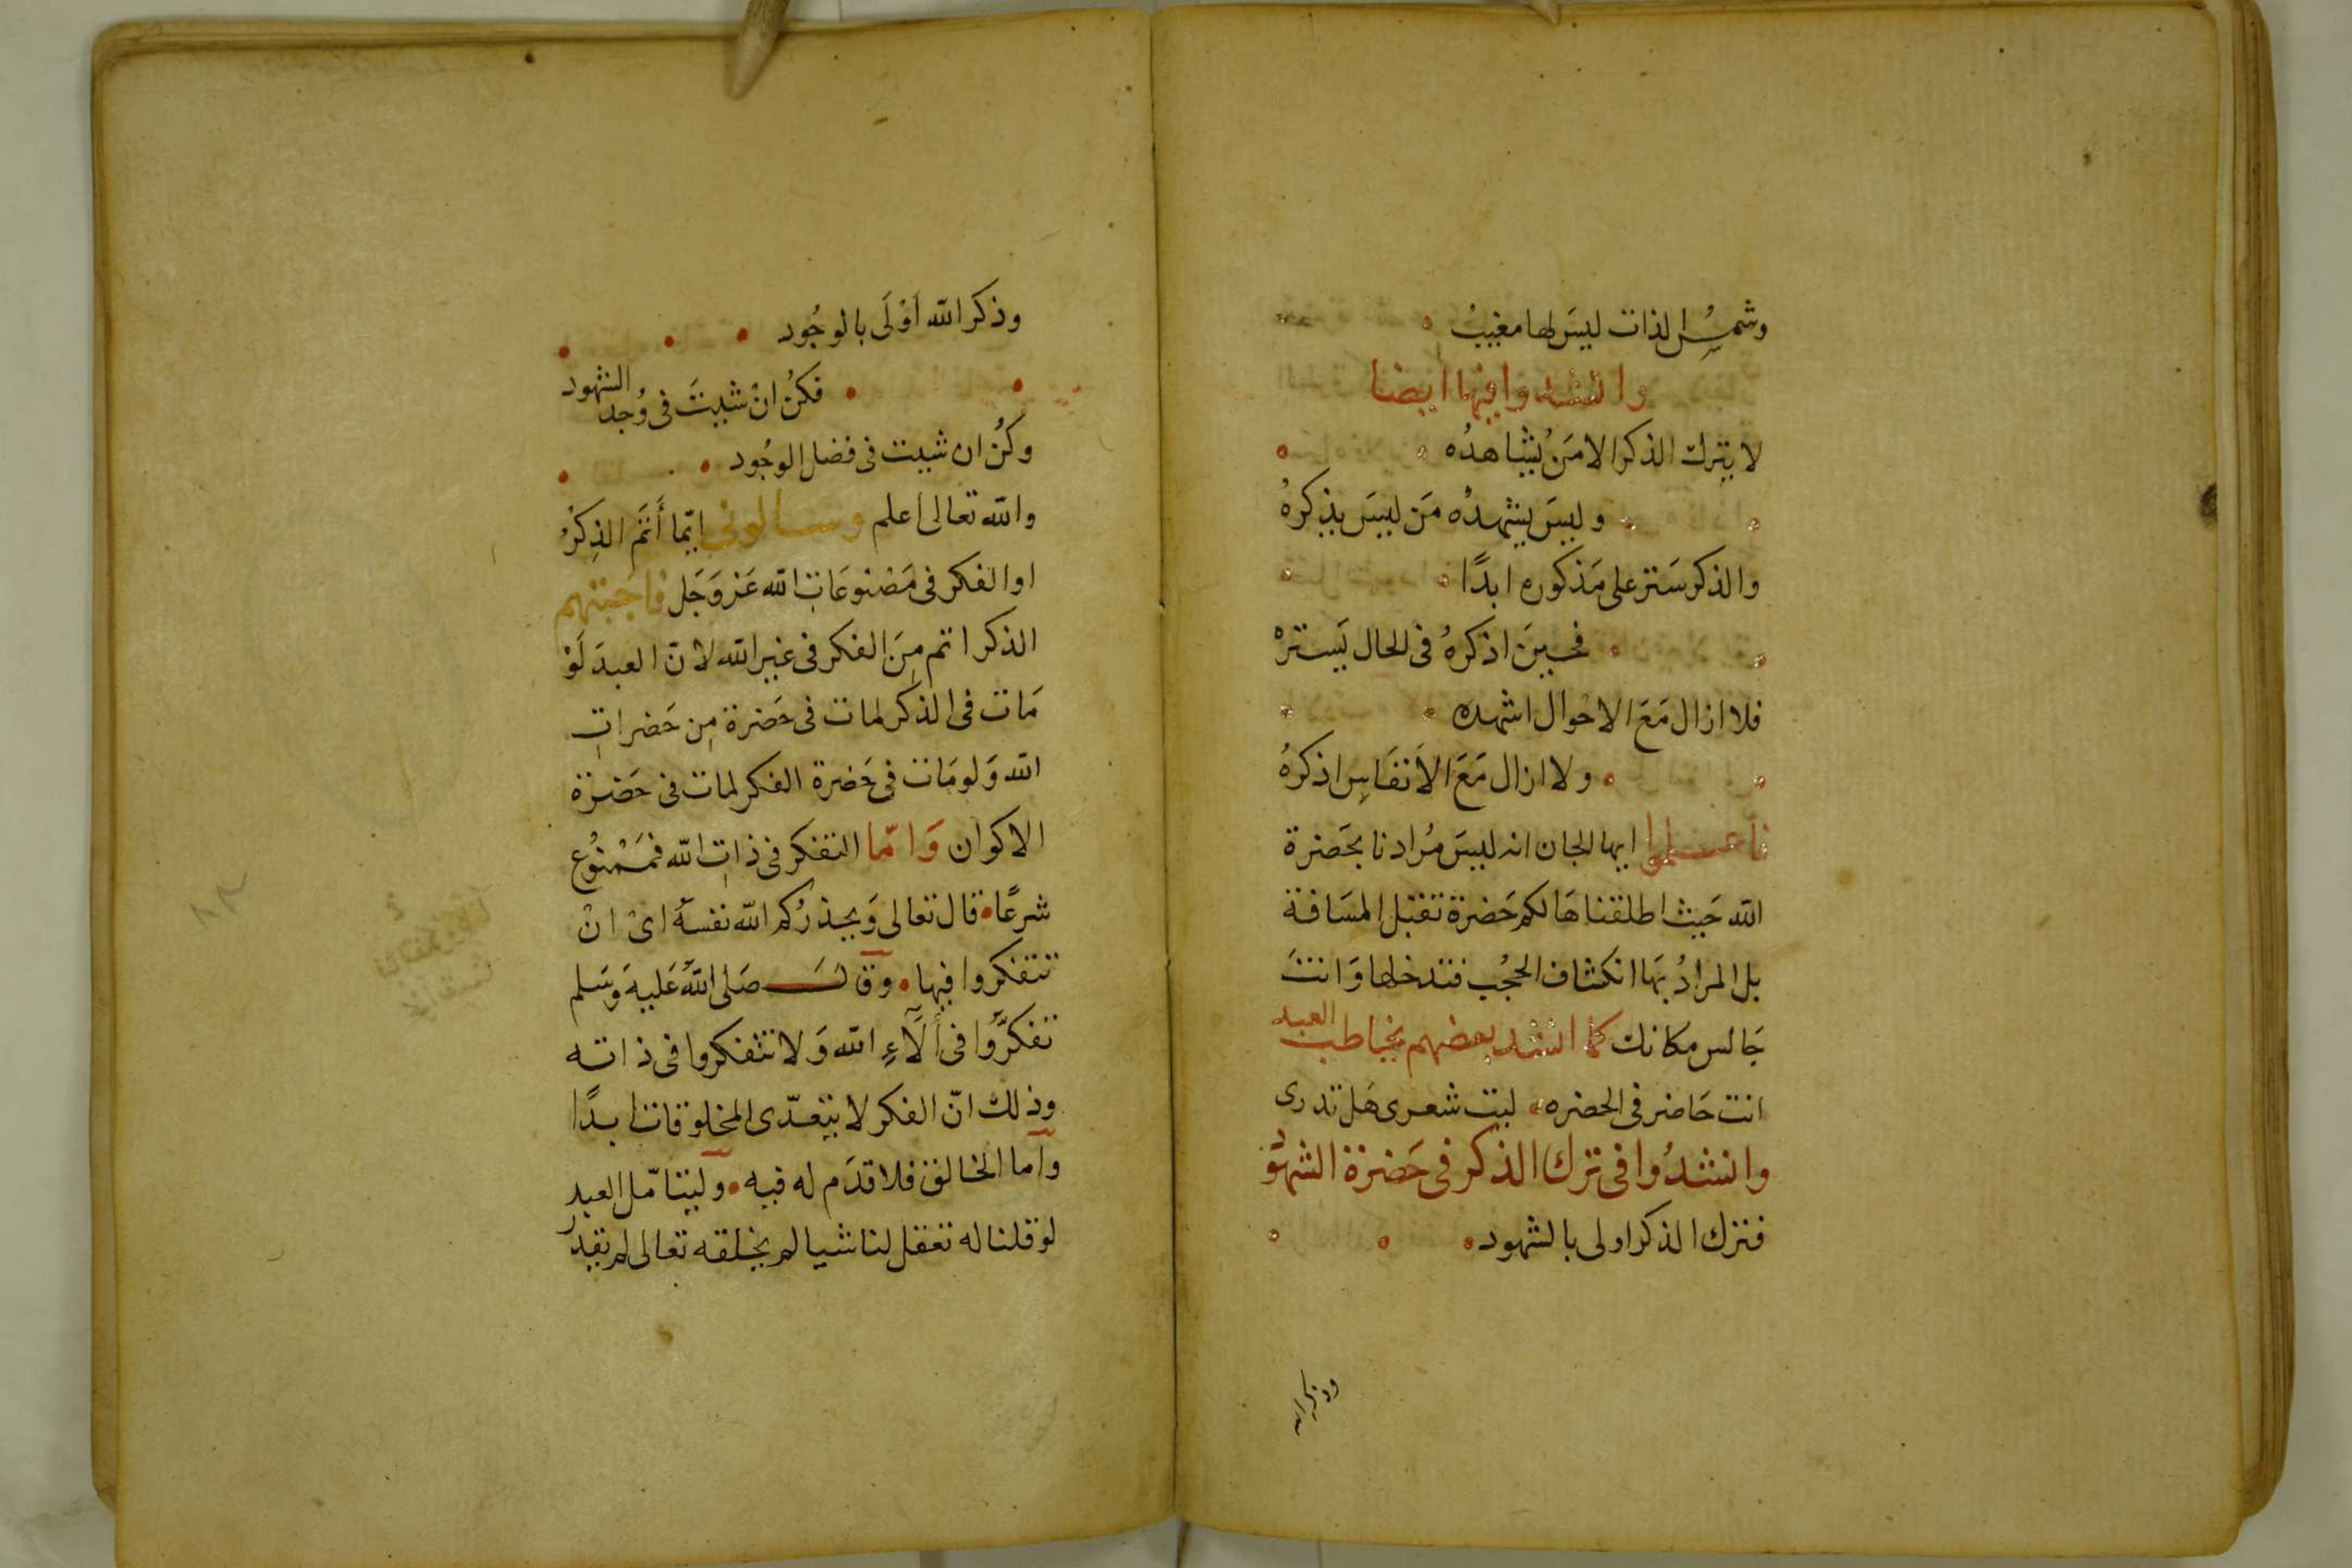 وشمسُ الذات ليسَ لها مغيبُ
وانشدوا فيها ايضا
لا يترك الذكر الا مَن يُشاهدُه
وليسَ يشهدُه مَن ليسَ يذكرهُ
والذكر سَتر على مَذكوره ابدًا
فحينَ اذكرهُ فى الحال يَستترْ
فلا ازال مَعَ الاحوال اشهده
ولا ازال مَعَ الاَنفَاسِ اذكرهُ
فاعلموا ايها الجان انه ليسَ مُرادنا بحَضرة
الله حَيث اطلقناهَا لكم حَضرة تقبَل المسَافة
بل المرادُ بهَا انكشاف الحجُب فتدخلها وَانتَ
جَالس مكانك كما انشد بعضهم يخاطب العبد
انت حَاضر فى الحضره ليت شعرى هَل تدرى
وانشدُوا فى ترك الذكر فى حَضرة الشهود
فترك الذكر اولى بالشهود
وذكر الله
وذكر الله أَوْلَى بالوجُود
فكنُ انْ شيتَ فى وُجد الشهود
وكنُ ان شيت فى فضل الوجُود
والله تعالى اعلم وسالونى ايّما أَتَم الذِكرُ
او الفكر فى مَصْنوعَاتِ الله عَز وَجَل فاجَبتهم
الذكر اتم مِنَ الفكر فى غير الله لانّ العبدَ لَوْ
مَات فى الذكر لمات فى حَضرة مِن حَضراتِ
الله وَلو مَات فى حَضرة الفكر لمات فى حَضرة
الاكوان وَامّا التفكر فى ذاتِ الله فمَمْنوُع
شرعًا قال تعالى وَيحذرُكم الله نفسَهُ اىْ انْ
تتفكروا فيها وقال صَلى اللهُ عَليهَ وَسَلم
تفكرُّوا فى ألَآءِ الله وَلا تتفكروا فى ذاته
وذلك انّ الفكر لا يتعَدّى المخلوقات ابدًا
واما الخالق فلا قدَم له فيه وليتامّل العبد
لو قلنا له تعقل لنا شيا لم يخلقه تعالى لم يقدر